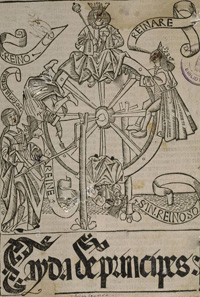 REINO
REINARE
REINE
SIN REINO SO
Cayda de principes